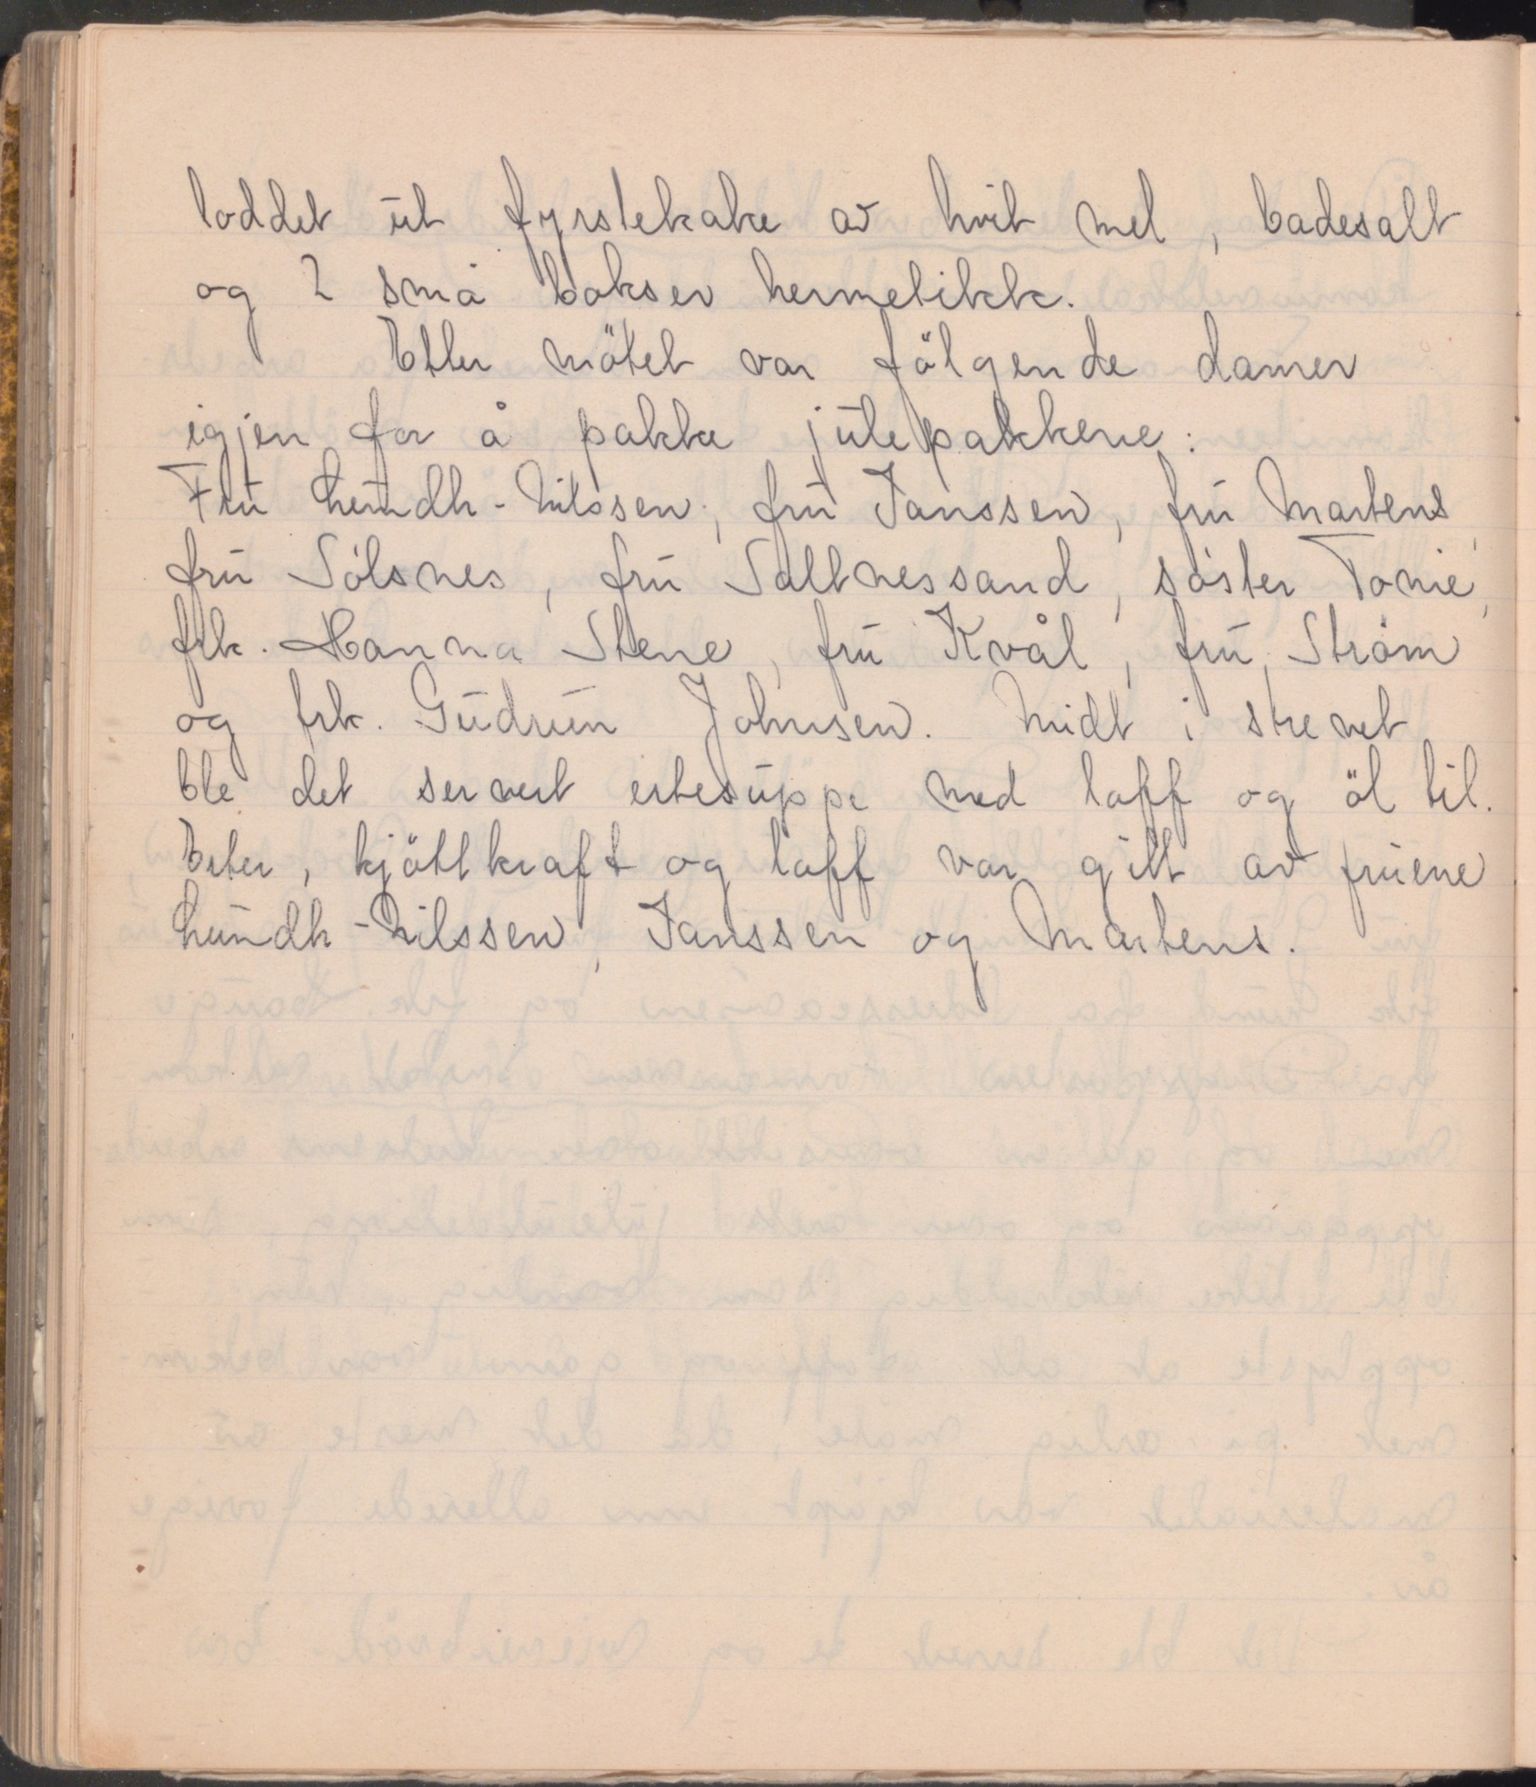 loddet ut fyrstekake av hvit mel, badesalt
og 2 små bokser hermetikk.
Etter mötet var fölgende damer
igjen for å pakke julepakkene:
Fru Lundh-Nilssen, fru Janssen, fru Martens,
fru Sölsnes, fru Saltnessand, söster Tonie,
frk. Hanna Stene, fru Kvål, fru Ström
og frk. Gudrun Johnsen. Midt i strevet
ble det servert ertesuppe med loff og öl til.
Erter, kjöttkraft og loff var gitt av fruene
Lundh-Nilssen, Janssen og Martens.